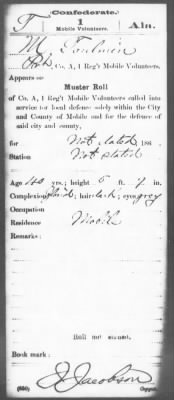 Confederate.
T 1 Ala.
Mobile Volunteers.
M Toulmin
Pvt, Co. A, 1 Reg't Mobile Volunteers.
Appears on
Muster Roll
of Co. A, 1 Reg't Mobile Volunteers called into
service for local defense solely within the City
and County of Mobile and for the defence of
said city and county,
for Not dated, 186 .
Station Not stated
Age 40 yrs.; height 5 ft. 7 in.
Complexion ; hair dark; eyes grey
Occupation
Residence Mobile
Remarks:
Roll not signed.
Book mark:
(650) J Jacobson
Copyist.